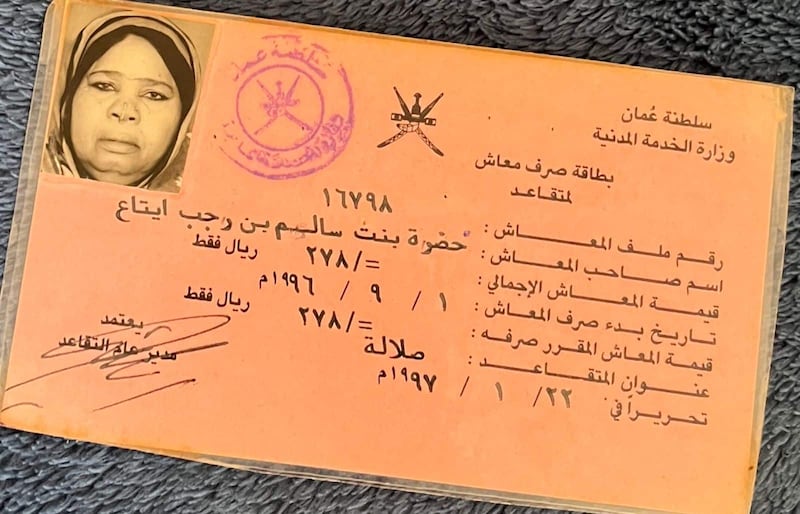 سلطنة عُمان
وزارة الخدمة المدنية
بطاقة صرف معاش
لمتقاعد
سلطنة عمان
رقم ملف المعاش : ١٦٧٩٨
اسم صاحب المعاش : حضوة بنت سالم بن رجب ايتاع
قيمة المعاش الإجمالي : =/٢٧٨ ريال فقط
تاريخ بدء صرف المعاش : ١ / ٩ / ١٩٩٦م
قيمة المعاش المقرر صرفه : =/٢٧٨ ريال فقط
عنوان المتقاعد : صلالة
تحريراً في ٢٢ / ١ / ١٩٩٧م
يعتمد
مدير عام التقاعد